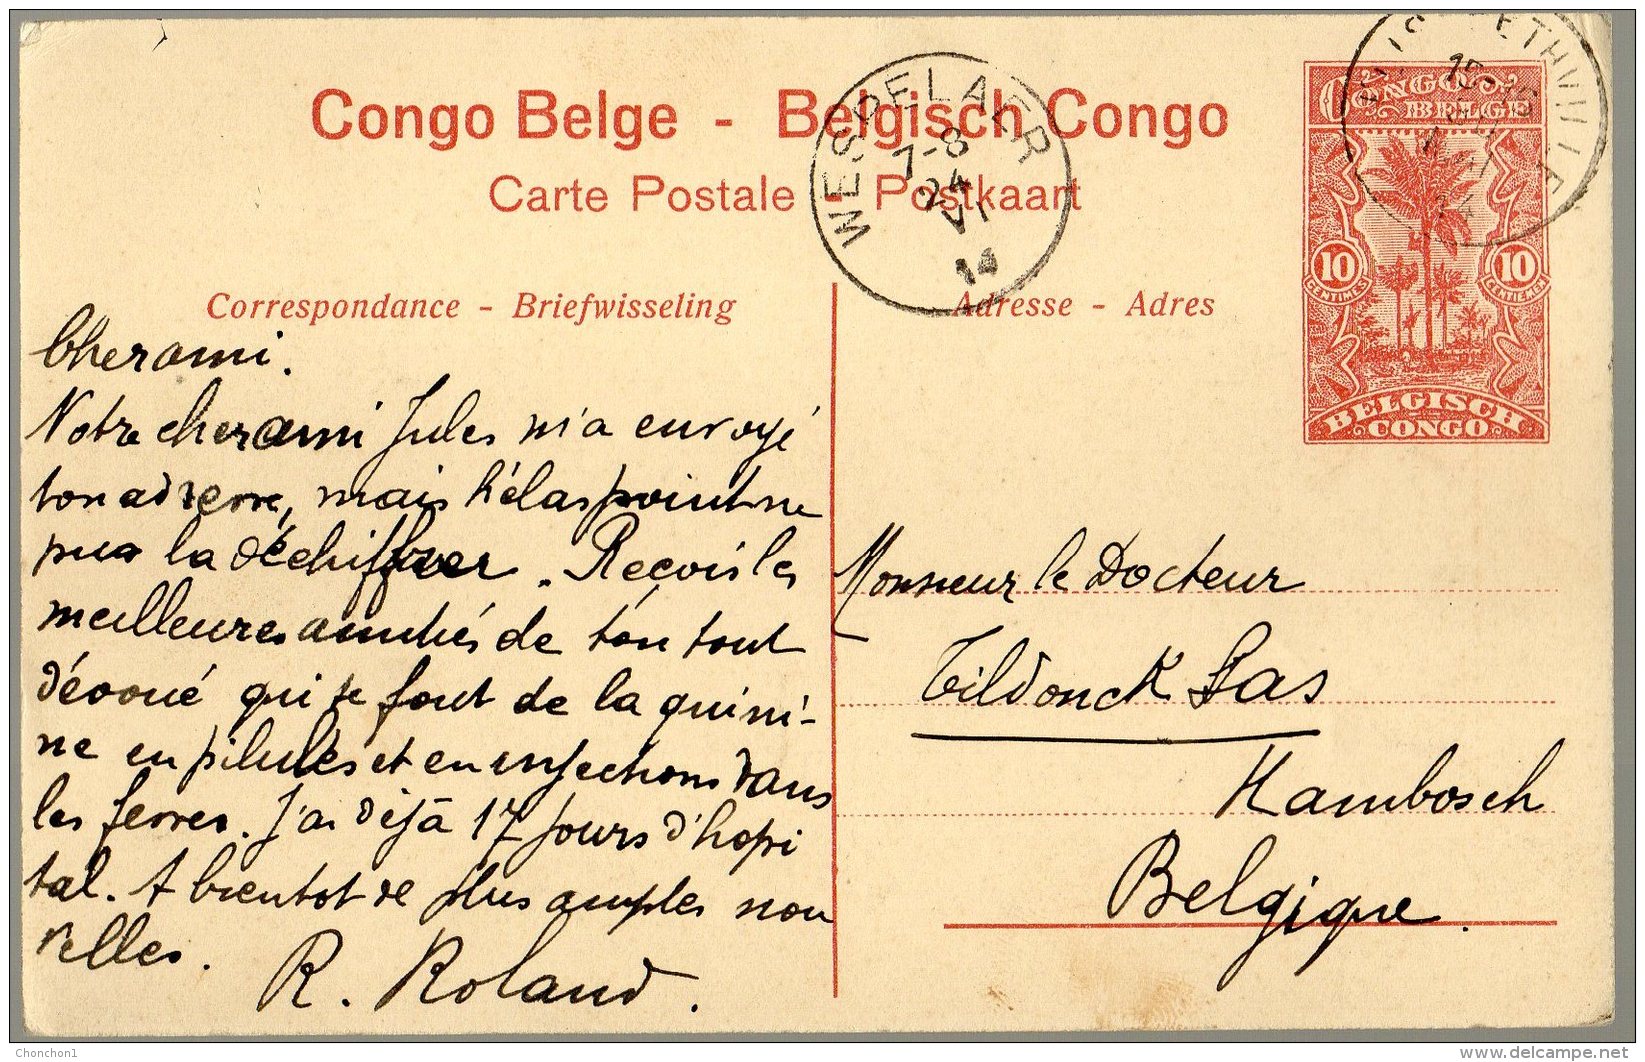 Congo Belge - Belgisch Congo
Carte Postale - Postkaart
WESPELAER
7-8
24
VI
14
CONGO BELGE
10 CENTIMES
10 CENTIEMEN
BELGISCH CONGO
Correspondance - Briefwisseling
Adresse - Adres
Cher ami.
Notre cher ami Jules m'a envoyé
ton adresse, mais hélas point ne
pus la déchiffrer. Reçois les
meilleures amitiés de ton tout
dévoué qui se fout de la quini-
ne en pilules et en injections dans
les fesses. J'ai déjà 17 jours d'hopi
tal. A bientot de plus amples nou
velles.
R. Roland.
Monsieur le Docteur
Tildonck Sas
Hambosch
Belgique.
Chonchon1
www.delcampe.net